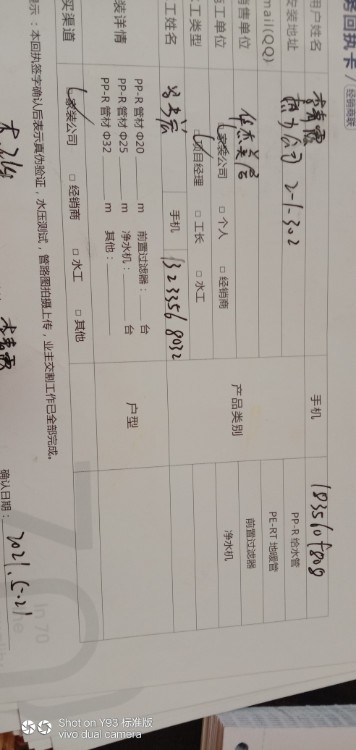 务回执卡 / (经销商联)
用户姓名 李春霞 手机
安装地址 热力公司 2-1-302
mail(QQ)
销售单位 佳杰美居
产品类别
PP-R 给水管
PE-RT 地暖管
前置过滤器
净水机
工单位 家装公司 □ 个人 □ 经销商
工类型 项目经理 □ 工长 □ 水工
工姓名 手机 13233568032
装详情
PP-R 管材 Φ20 m 前置过滤器： 台
PP-R 管材 Φ25 m 净水机： 台
PP-R 管材 Φ32 m 其他：
户型
买渠道 家装公司 □ 经销商 □ 水工 □ 其他
示：本回执签字确认后表示真伪验证，水压测试，管路图拍摄上传，业主交割工作已全部完成。
李春霞 确认日期：2021.5.21
in 70
he
Shot on Y93 标准版
vivo dual camera